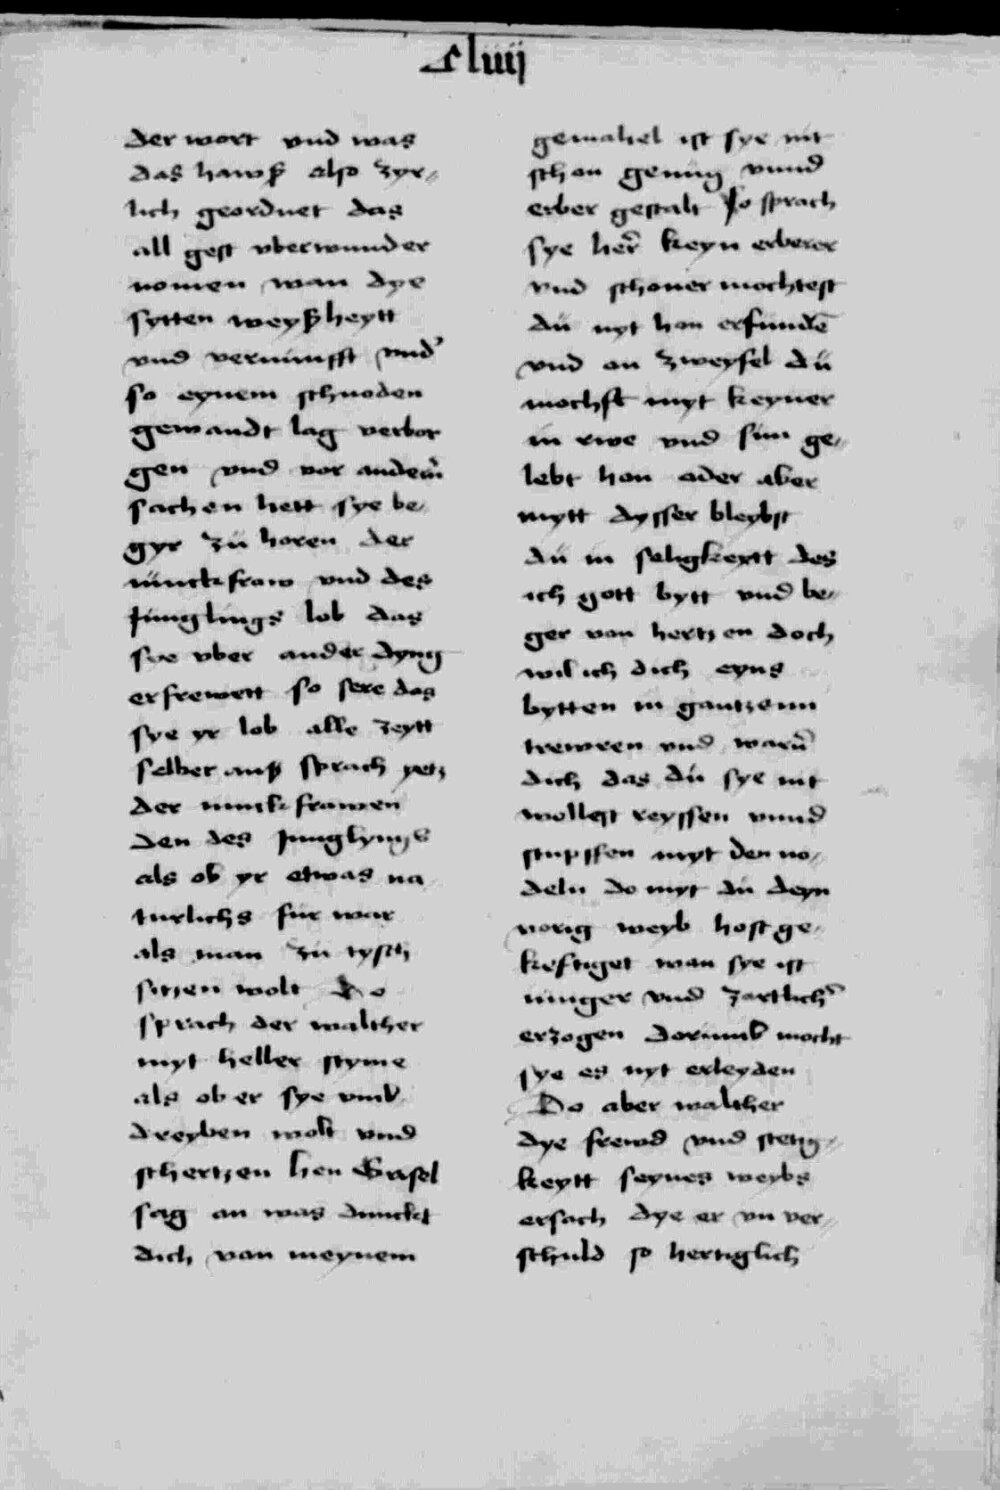 cliiij
der wort vnd was
das hawß also zyr-
lich geordnet das
all gest vberwunder
nomen wan dye
sytten weyßheytt
vnd vernunfft vnd'
so eynem schnoden
gewandt lag verbor
gen vnd vor andern̄
sachen hett sye be-
gyr zü horen der
iünckfraw vnd des
Jünglings lob das
sye vber ander dyng
erfrewett so sere das
sye yr lob alle zeytt
selber auß sprach yetz
der iunckfrawen
den des Junglyngs
als ob yr etwas na
turlichs für war
als man zü tysch
sitzen wolt Do
sprach der walther
myt heller styme
als ob er sye vmb
dreyben wolt vnd
schertzen hen Grisel
sag an was dunckt
dich von meynem
gemahel ist sye nit
schon genüg vnnd
erber gestalt So sprach
sye her̄ keyn erberer
vnd schoner mochtest
dü nyt hon erfundē
vnd on zweyfel dü
mochst myt keyner
in rwe vnd sün ge-
lebt hon oder aber
mytt dysser bleybst
dü in seligkeytt des
ich gott bytt vnd be-
ger von hertzen doch
wil ich dich eyns
bytten in gantzenn
trewren vnd warn̄
dich das dü sye nit
wollest reyssen vnnd
stupffen myt den no-
deln do myt dü deyn
vorig weyb host ge-
kestiget wan sye ist
iunger vnd zartlich'
erzogen dorumb mocht
sye es nyt erleyden
Do aber walther
dye frewd vnd stetig-
keytt seynes weybs
ersach dye er vn ver-
schuld so hertiglich